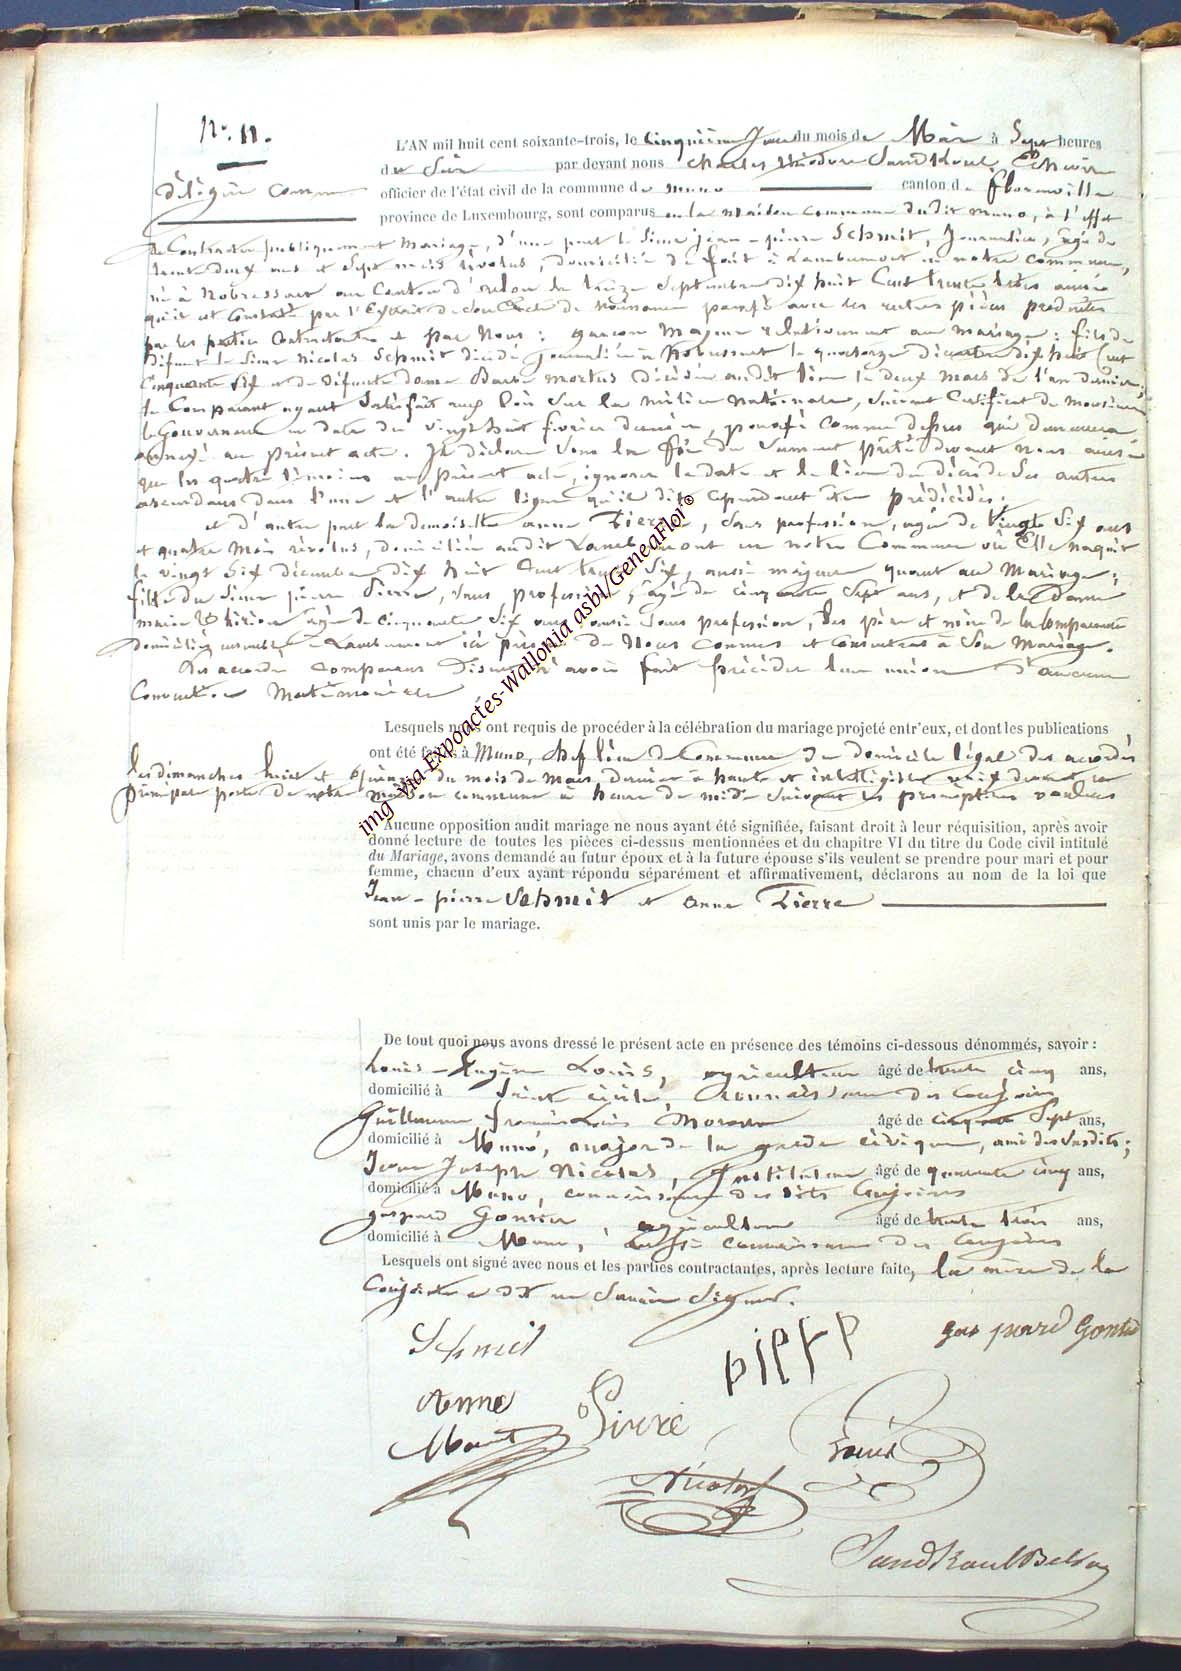 N° 11.
L'AN mil huit cent soixante-trois, le cinquième jour du mois de Mai à Sept heures
du Soir par devant nous Charles théodore Sandkoul, Echevin
délégué comme officier de l'état civil de la commune de muno canton de florenville
province de Luxembourg, sont comparus en la Maison Commune dudit muno, à l'effet
de Contracter publiquement Mariage, d'une part le Sieur jean-pierre Schmit, Journalier, âgé de
trente deux ans et Sept mois révolus, domicilié de fait à Lambermont en notre Commune,
né à Nobressart au Canton d' le treize Septembre dix huit Cent trente
qu'il est Constaté par l'Extrait de Son Acte de Naissance paraphé avec les autres pièces produites
par les parties Contractantes et par Nous : garçon Majeur relativement au Mariage : fils de
Défunt le Sieur Nicolas Schmit décédé journalier à Nobressart le quatorze dix huit Cent
Cinquante Six et de Défunte dame Barbe décédée audit lieu le deux Mars de l'an dernier ;
le Comparant ayant Satisfait aux lois Sur la milice Nationale, Suivant Certificat de Monsieur
le Gouverneur en date du vingt huit février dernier, paraphé Comme dessus qui demeurera
annexé au présent acte. Il déclare Sous la foi du Serment prêté devant nous ainsi
que les quatre témoins au présent acte, ignorer la date et le lieu du décès de Ses autres
ascendans dans l'une et l'autre ligne qu'il dit cependant être prédécédés.
et d'autre part la demoiselle anne Pierre, Sans profession, âgée de Vingt Six ans
et quatre Mois révolus, domiciliée audit Lambermont en notre Commune où Elle naquit
le vingt Six décembre dix huit Cent trente Six, aussi majeure quant au Mariage ;
fille du Sieur pierre Pierre, Sans profession, âgé de cinquante Sept ans, et de la Dame
marie âgée de Cinquante Six ans aussi Sans profession, les père et mère de la Comparante
Domiciliés ensemble à Lambermont ici présents de Nous Connus et Consentans à Son Mariage.
Les accordés Comparans Disent n'avoir fait précéder leur union d'aucune
Convention Matrimoniale
Lesquels nous ont requis de procéder à la célébration du mariage projeté entr'eux, et dont les publications
ont été faites à Muno, chef lieu de Commune du domicile légal des accordés,
les dimanches huit et quinze du mois de Mars dernier à haute et intelligible voix devant la
principale porte de notre Maison commune à heure de midi Suivant les prescriptions voulues
Aucune opposition audit mariage ne nous ayant été signifiée, faisant droit à leur réquisition, après avoir
donné lecture de toutes les pièces ci-dessus mentionnées et du chapitre VI du titre du Code civil intitulé
du Mariage, avons demandé au futur époux et à la future épouse s'ils veulent se prendre pour mari et pour
femme, chacun d'eux ayant répondu séparément et affirmativement, déclarons au nom de la loi que
Jean-pierre Schmit et Anne Pierre
sont unis par le mariage.
De tout quoi nous avons dressé le présent acte en présence des témoins ci-dessous dénommés, savoir :
Louis-Eugène Louis, agriculteur âgé de trente cinq ans,
domicilié à Sainte Cécile, Connaissance des Conjoints
Guillaume françois Morant âgé de cinquante Sept ans,
domicilié à Muno, major de la garde Civique, ami des Susdits ;
Jean Joseph Nicolas, Instituteur âgé de quarante cinq ans,
domicilié à Muno, connaissance des dits Conjoints
gaspard Gontier, agriculteur âgé de trente trois ans,
domicilié à Muno, aussi connaissance des Conjoints
Lesquels ont signé avec nous et les parties contractantes, après lecture faite, la mère de la
Conjointe a dit ne Savoir Signer.
Schmit
gas pard Gontier
Anne Pierre
Louis
Nicolas
img via Expoactes-Wallonia asbl/GeneaFlor©